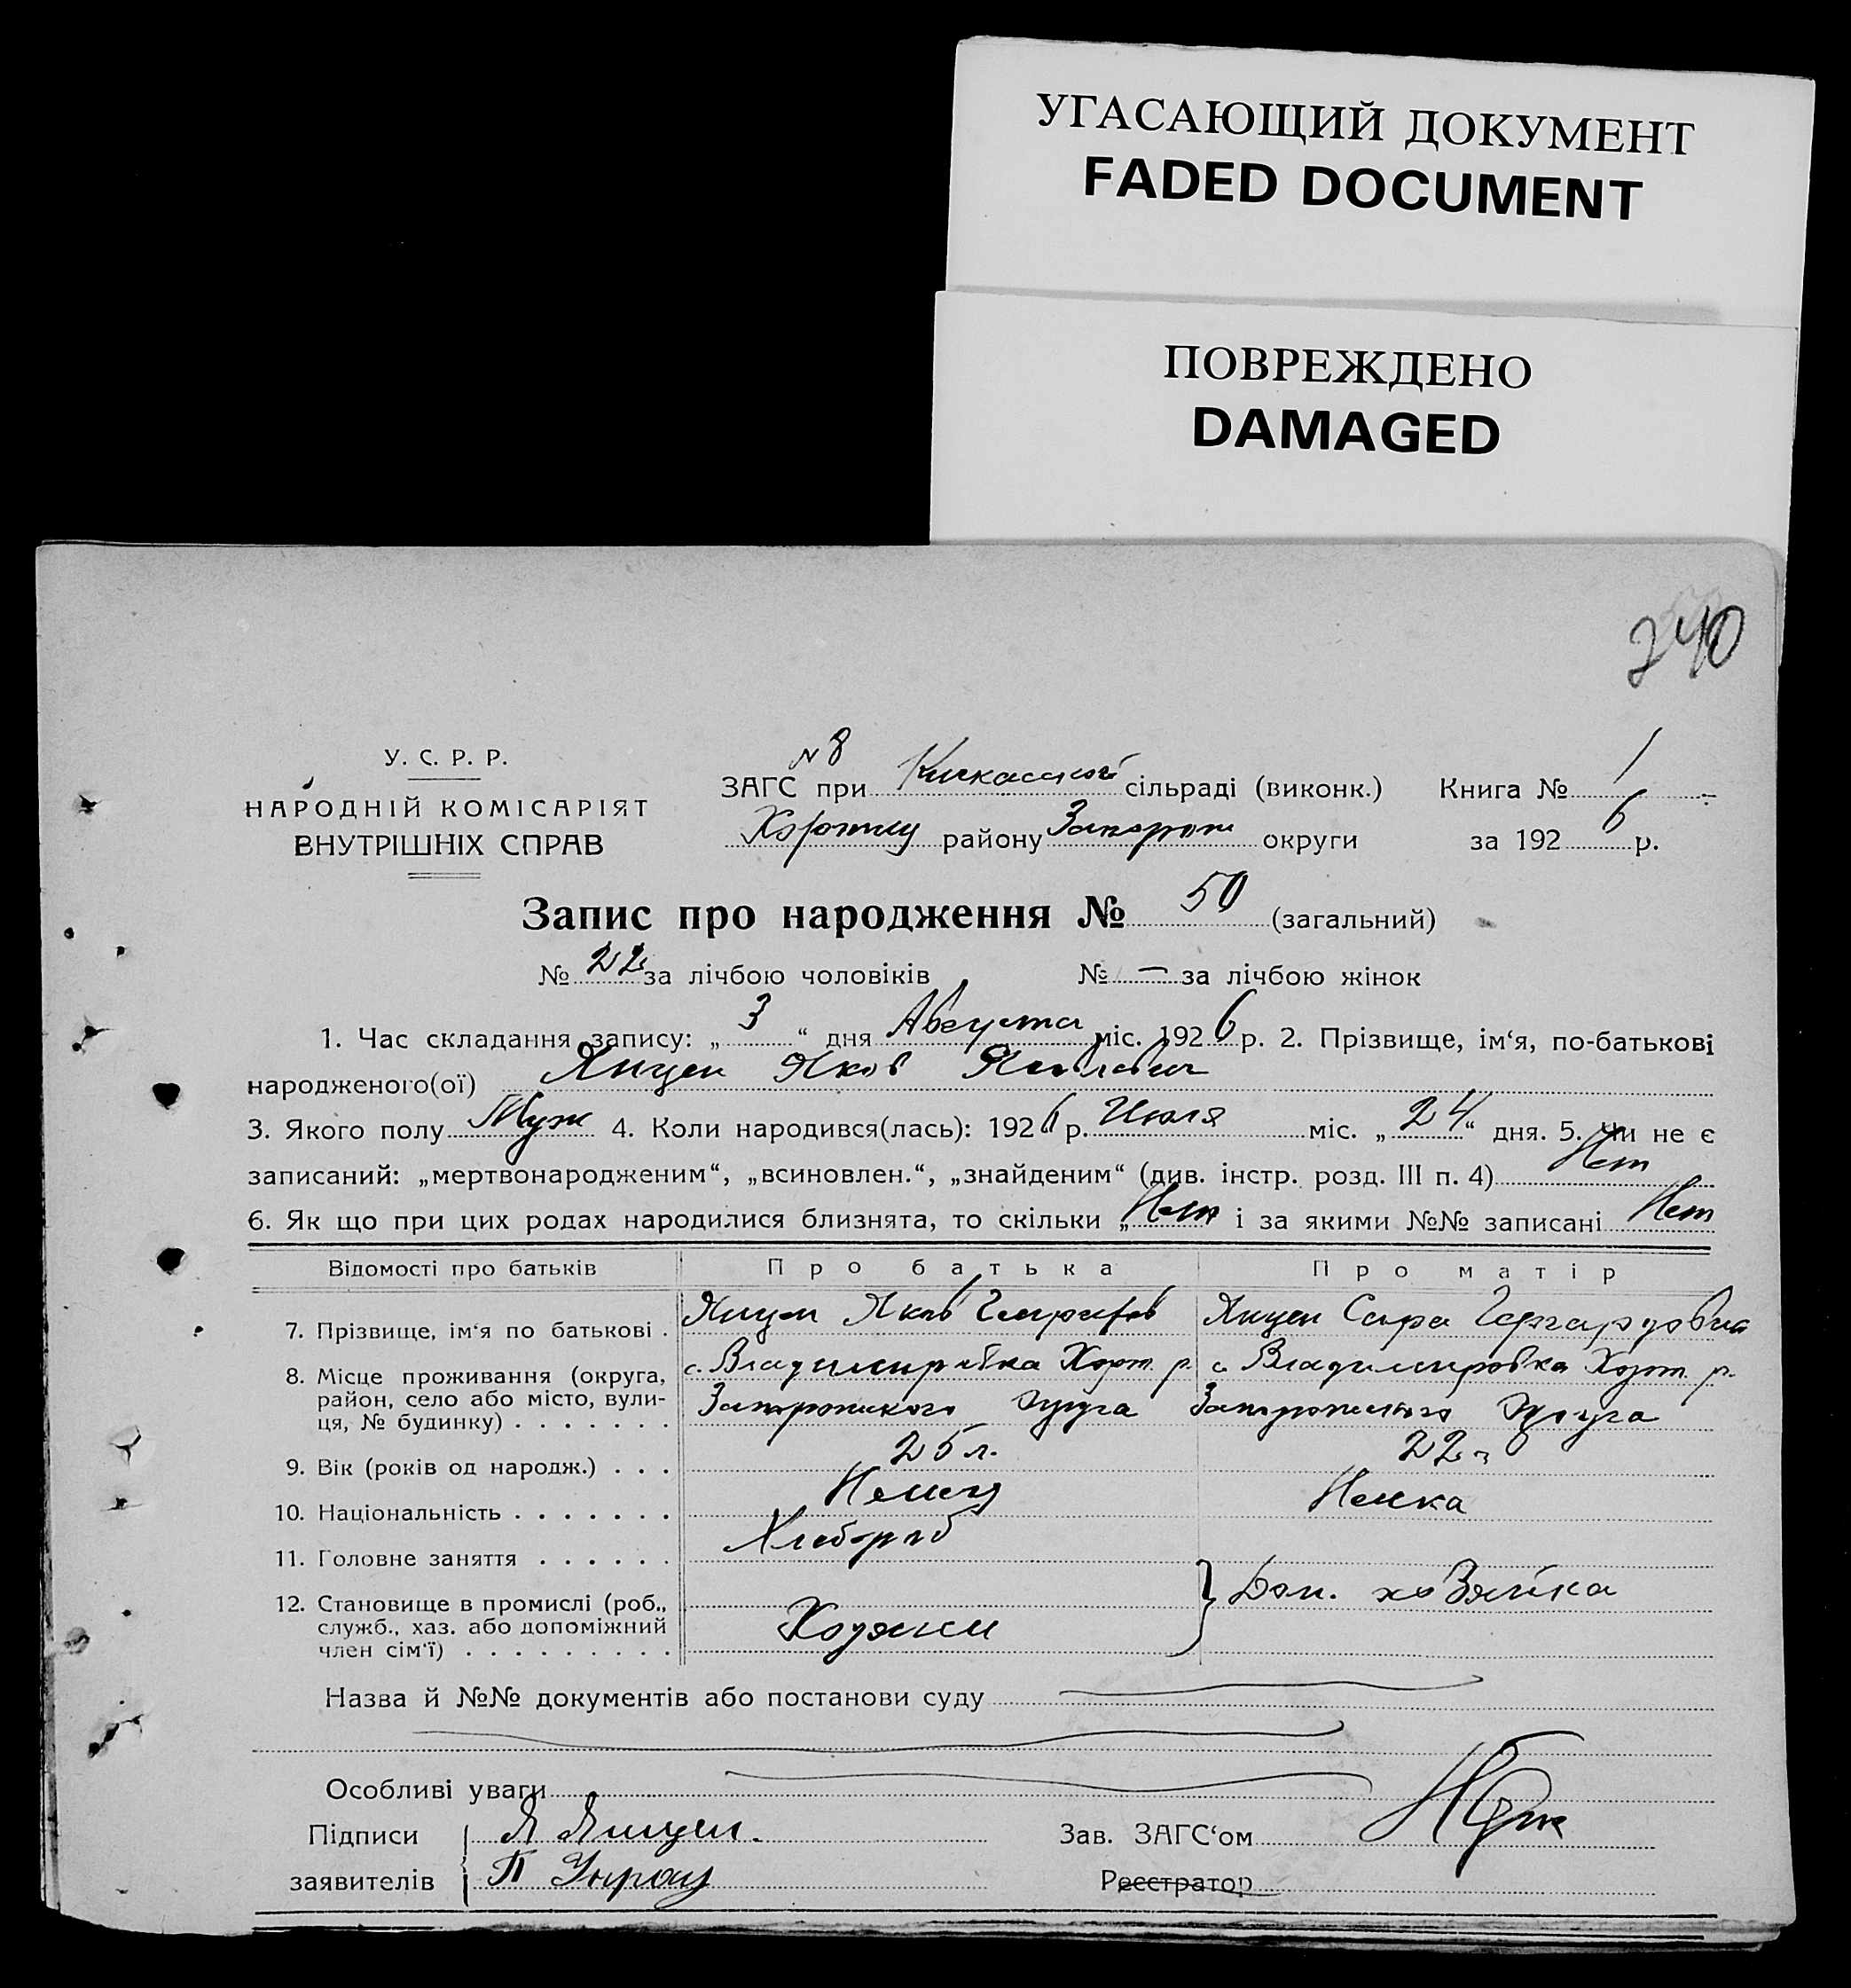 УГАСАЮЩИЙ ДОКУМЕНТ
FADED DOCUMENT
ПОВРЕЖДЕНО
DAMAGED
240
У. С. Р. Р.
НАРОДНІЙ КОМІСАРІЯТ
ВНУТРІШНІХ СПРАВ
N 8
ЗАГС при Кичкасской сільраді (виконк.) Книга № 1
району Запорож округи за 1926 р.
Запис про народження № 50 (загальний)
№ 22 за лічбою чоловіків № — за лічбою жінок
1. Час складання запису: „ 3 “ дня Августа міс. 1926 р. 2. Прізвище, ім‘я, по-батькові
народженого(ої) Янцен Яков Яковлевич
3. Якого полу Муж 4. Коли народився(лась): 1926 р. Июля міс. „ 24 “ дня. 5. Чи не є
записаний: „мертвонародженим“, „всиновлен.“, „знайденим“ (див. інстр. розд. III п. 4) Нет
6. Як що при цих родах народилися близнята, то скільки „ Нет і за якими №№ записані Нет
Відомості про батьків Про батька Про матір
7. Прізвище, ім‘я по батькові . Янцен Яков Янцен Сара Гергардовна
8. Місце проживання (округа, район, село або місто, вули-ця, № будинку) . . . . . . . с. Владимировка Хорт. р. Запорожского Округа с. Владимировка Хорт. р. Запорожского Округа
9. Вік (років од народж.) . . . 25 л. 22 л
10. Національність . . . . . . . Немец Немка
11. Головне заняття . . . . . . Хлебороб
12. Становище в промислі (роб., служб., хаз. або допоміжний член сім‘ї) . . . . . . . . . Хозяин Дом. хозяйка
Назва й №№ документів або постанови суду
Особливі уваги
Підписи Я Янцен.
заявителів П Унрау
Зав. ЗАГС‘ом
Реєстратор